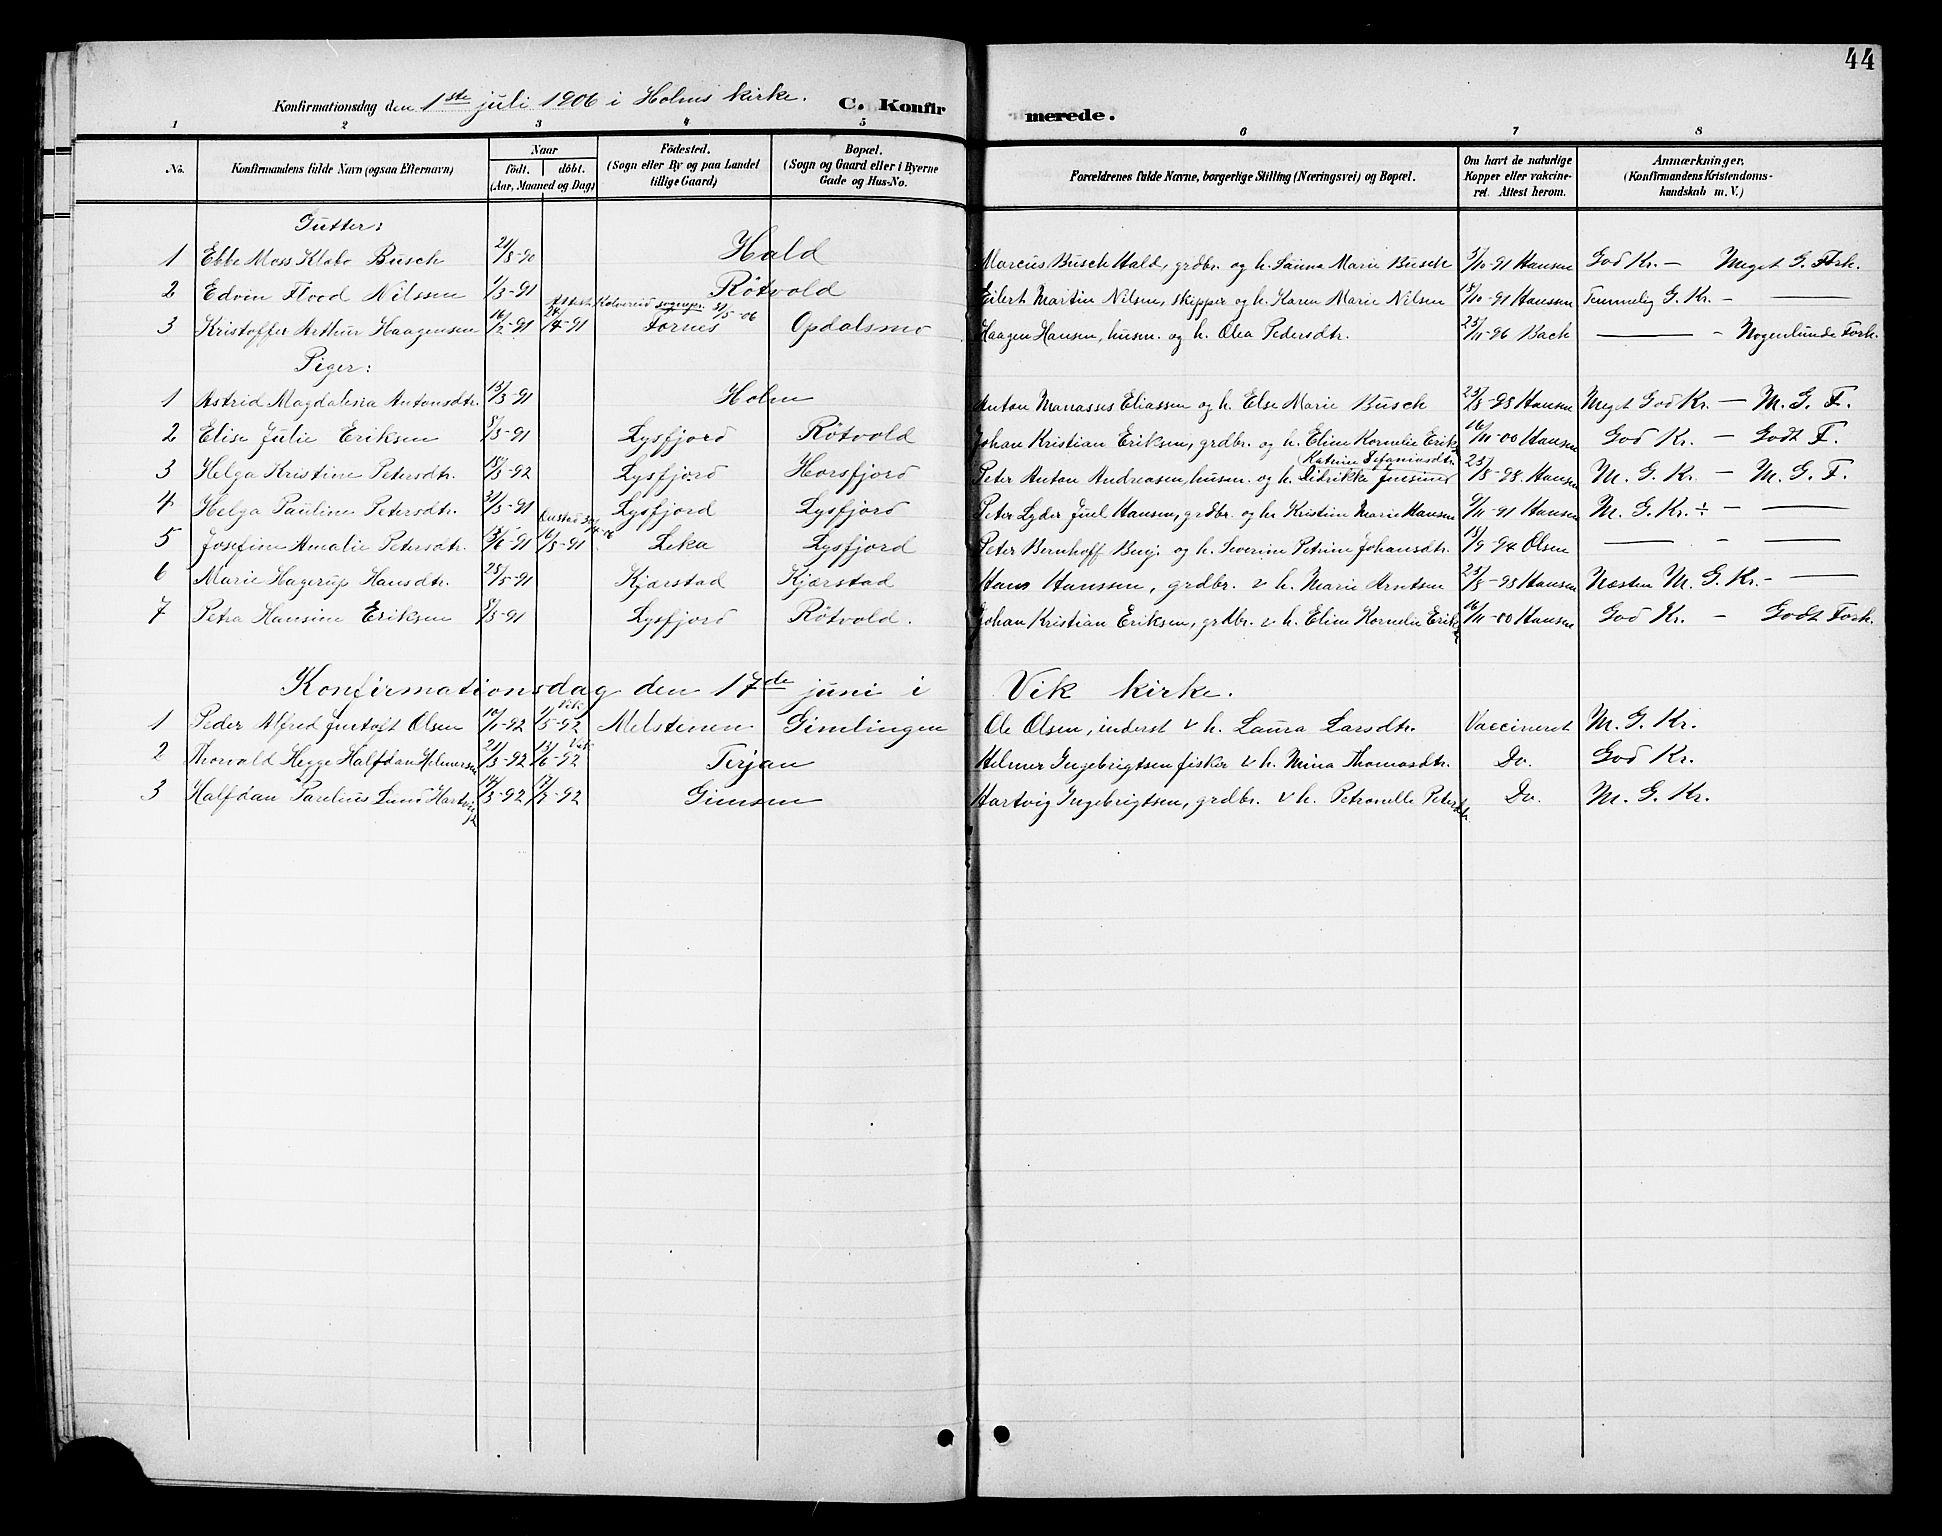 44
Konfirmationsdag den 1ste juli 1906 i Holms kirke. C. Konfirmerede.
1 2 3 4 5 6 7 8
No. Konfirmandens fulde Navn (ogsaa Efternavn) Naar födt. döbt. (Aar, Maaned og Dag) Födested. (Sogn eller By og paa Landet tillige Gaard) Bopæl. (Sogn og Gaard eller i Byerne Gade og Hus-No. Forældrenes fulde Navne, borgerlige Stilling (Næringsvei) og Bopæl. Om havt de naturlige Kopper eller vakcineret. Attest herom. Anmærkninger. (Konfirmandens Kristendomskundskab m. V.)
Gutter:
1 Ebbe Moss Klabo Busch 21/8-90 Hald Marcus Busch Hald, grdbr. og h. Sauna Marie Busch 3/10-91 Hansen God Kr. — Meget G. Fork.
2 Edvin Flood Nilssen 1/3-91 Rötvold Eilert Martin Nilsen, skipper og h. Karen Marie Nilsen 18/10-91 Hanssen Temmelig G. Kr. — —
Attest Kolvereid sognepr. 31/5-06
3 Kristoffer Arthur Haagensen 16/2-91 24/4-91 Fornes Opdalsmo Haagen Hansen, husm. og h. Olea Pedersdtr. 25/11-96 Bach — — Nogenlunde Fork.
Piger:
1 Astrid Magdalena Antonsdtr. 13/3-91 Holm Anton Manasses Eliassen og h. Else Marie Busch 25/8-98 Hansen Meget God Kr. — M. G. F.
2 Elise Julie Eriksen 8/3-91 Lysfjord Rötvold Johan Kristian Eriksen, grdbr. og h. Eline Kornelie Eriks 16/11-00 Hansen God Kr. — Godt F.
Katrine Stefaniasdtr.
3 Helga Kristine Petersdtr. 18/3-92 Lysfjord Horsfjord Peter Anton Andreasen, husm. og h. Didrikke 25/8-98. Hansen M. G. Kr. — M. G. F.
4 Helga Pauline Petersdtr. 31/3-91 Lysfjord Lysfjord Peter Lyder Juel Hansen, grdbr. og h. Kristine Marie Hansen 9/11-91 Hansen M. G. Kr. ÷ — —
5 Josefine Amalie Petersdtr. 13/6-91 16/8-91 Leka Lysfjord Peter Bernhoff Benj. og h. Severine Petrine Johansdtr. 18/9-94 Olsen — — —
6 Marie Hagerup Hansdtr. 28/5-91 Kjærstad Kjærstad Hans Hanssen, grdbr. v h. Marie Arntsen 25/8-98 Hansen Næsten M. G. Kr. — —
7 Petra Hansine Eriksen 8/3-91 Lysfjord Rötvold. Johan Kristian Eriksen, grdbr. v h. Eline Kornelie Eriks 16/11-00 Hansen God Kr. — Godt Fork.
Konfirmationsdag den 17de juni i Vik kirke.
1 Peder Alfred Olsen 10/1-92 1/5-92 Vik Melstenen Gimlingen Ole Olsen, inderst v h. Laura Larsdtr. Vaccineret M. G. Kr.
2 Thorvald Hegge Halfdan Helmersen 21/3-92 13/6-92 Vik Tirjan Helmer Ingebrigtsen fisker v h. Mina Thomasdtr. Do. God Kr.
3 Halfdan Paulius Lund Hartvigs 14/3-92 17/7-92 Gimsen Hartvig Ingebrigtsen, grdbr. v h. Petronelle Petersdtr. Do. M. G. Kr.